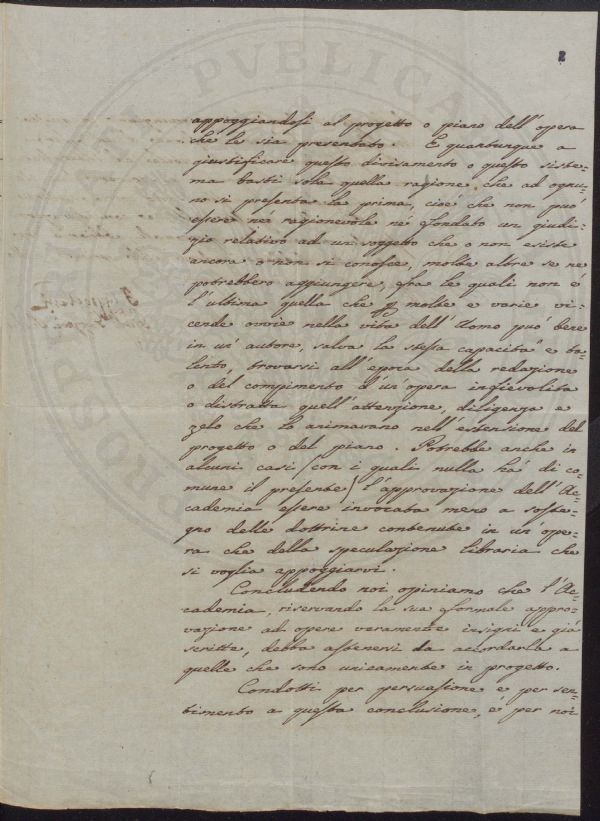 2
appoggiandosi al progetto o piano dell'opera
che le sia presentato. E quantunque a
giustificare questo divisamento o questo siste=
ma basti sola quella ragione che ad ognu=
no si presenta la prima, cioè che non può
essere né ragionevole né fondato un giudi=
zio relativo ad un soggetto che o non esiste
ancora o non si conosce, molte altre se ne
potrebbero aggiungere, fra le quali non è
l'ultima quella che molte e varie vi=
cende ovvie nella vita dell'Uomo può bene
in un'autore, salva la stessa capacità e ta=
lento, trovarsi all'epoca della redazione
o del compimento d'un'opera infievolita
o distratta quell'attenzione, diligenza e
zelo che lo animavano nell'estensione del
progetto o del piano. Potrebbe anche in
alcuni casi (con i quali nulla há di co=
mune il presente) l'approvazione dell'Ac=
cademia essere invocata meno a soste=
gno delle dottrine contenute in un'ope=
ra che della speculazione libraria che
si voglia appoggiarvi.
Concludendo noi opiniamo che l'Ac=
cademia, riservando la sua formale appro=
vazione ad opere veramente insigni e già
scritte, debba astenersi da accordarla a
quelle che sono unicamente in progetto.
Condotti per persuasione e per sen=
timento a questa conclusione, è per noi